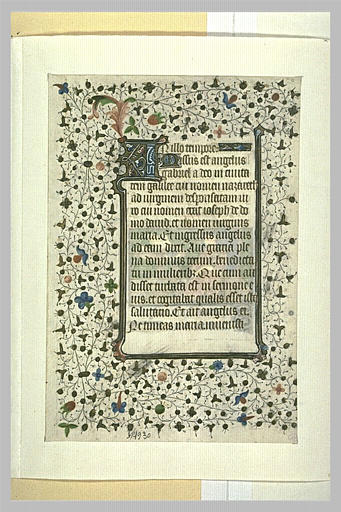 In illo tempore
Missus est angelus
gabriel a deo in civita
tem galilee cui nomen nazareth
ad virginem desponsatam vi
ro cui nomen erat ioseph de do
mo david. et nomen virginis
maria. Et ingressus angelus
ad eam dixit. Ave gratia ple
na dominus tecum. benedicta
tu in mulieribz. Que cum au
disset turbata est in sermone e
ius. et cogitabat qualis esset ista
salutatio. Et ait angelus ei.
Ne timeas maria invenisti